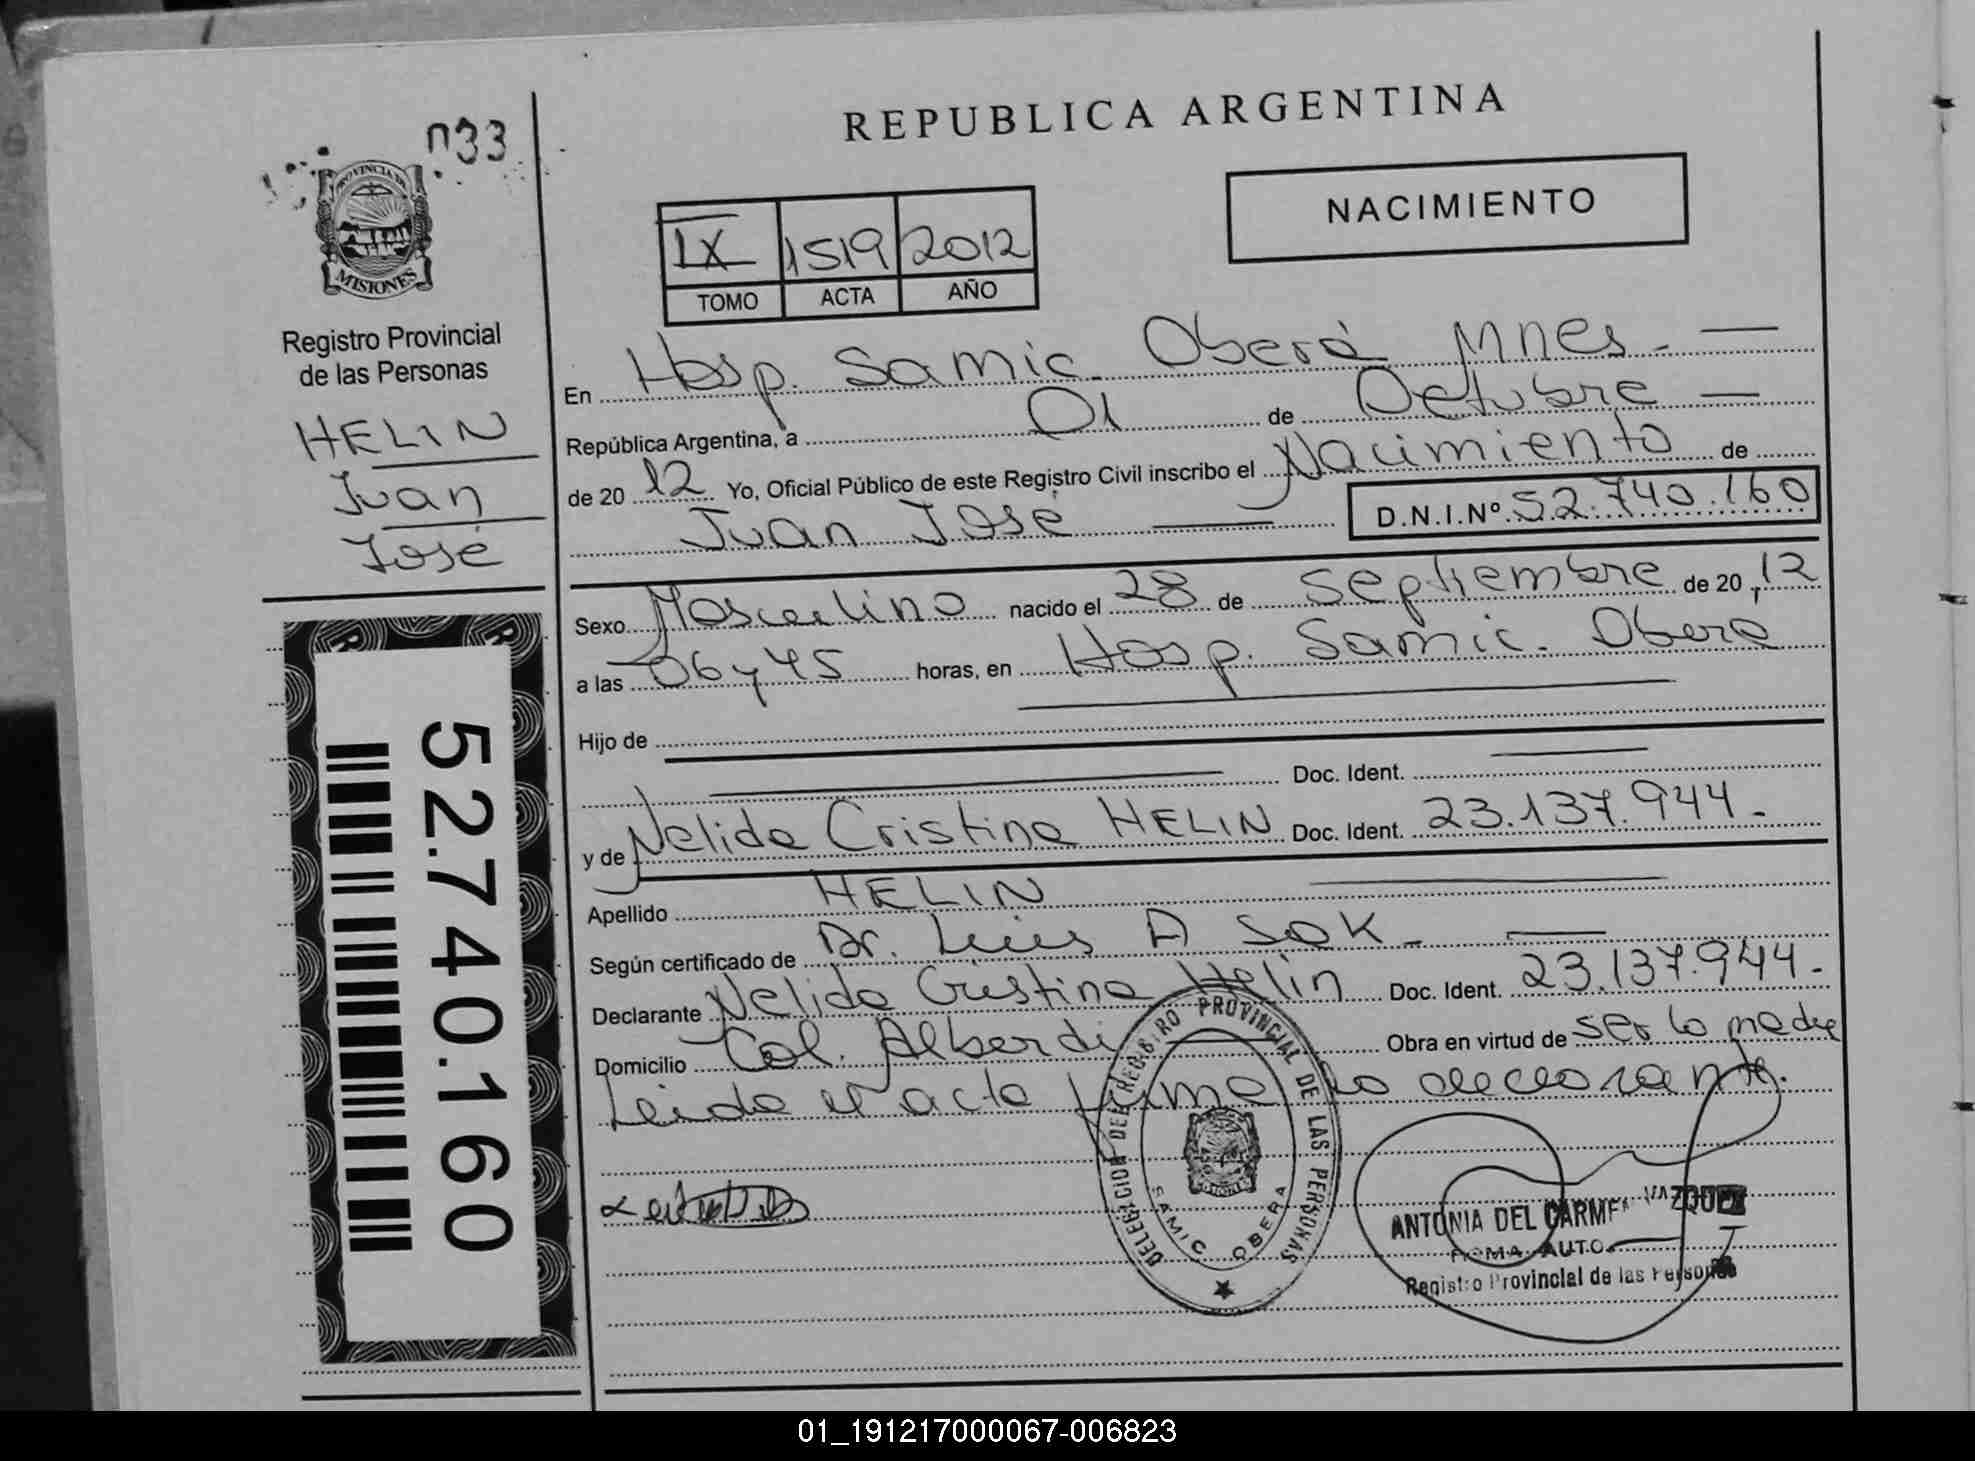 REPUBLICA ARGENTINA
033
NACIMIENTO
IX 1519 2012
TOMO ACTA AÑO
PROVINCIA DE
MISIONES
Registro Provincial
de las Personas
HELIN
Juan
José
En Hosp. Samic. Oberá Mnes.
República Argentina, a 01 de Octubre
de 2012 Yo, Oficial Público de este Registro Civil inscribo el Nacimiento de
Juan José D.N.I.Nº 52.740.160
Sexo Masculino nacido el 28 de Septiembre de 20 12
a las 06 y 45 horas, en Hosp. Samic. Oberá
Hijo de
Doc. Ident.
y de Nelida Cristina HELIN Doc. Ident. 23.137.944.-
Apellido HELIN
Según certificado de Dr. Luis A SOK
Declarante Nelida Cristina Helin Doc. Ident. 23.137.944.-
Domicilio Col. Alberdi Obra en virtud de ser la madre
Leida el acta firma la declarante.
52.740.160
DELEGACION DEL REGISTRO PROVINCIAL DE LAS PERSONAS
SAMIC OBERA
ANTONIA DEL CARMEN VAZQUEZ
FIRMA AUTO.
Registro Provincial de las Personas
01_191217000067-006823